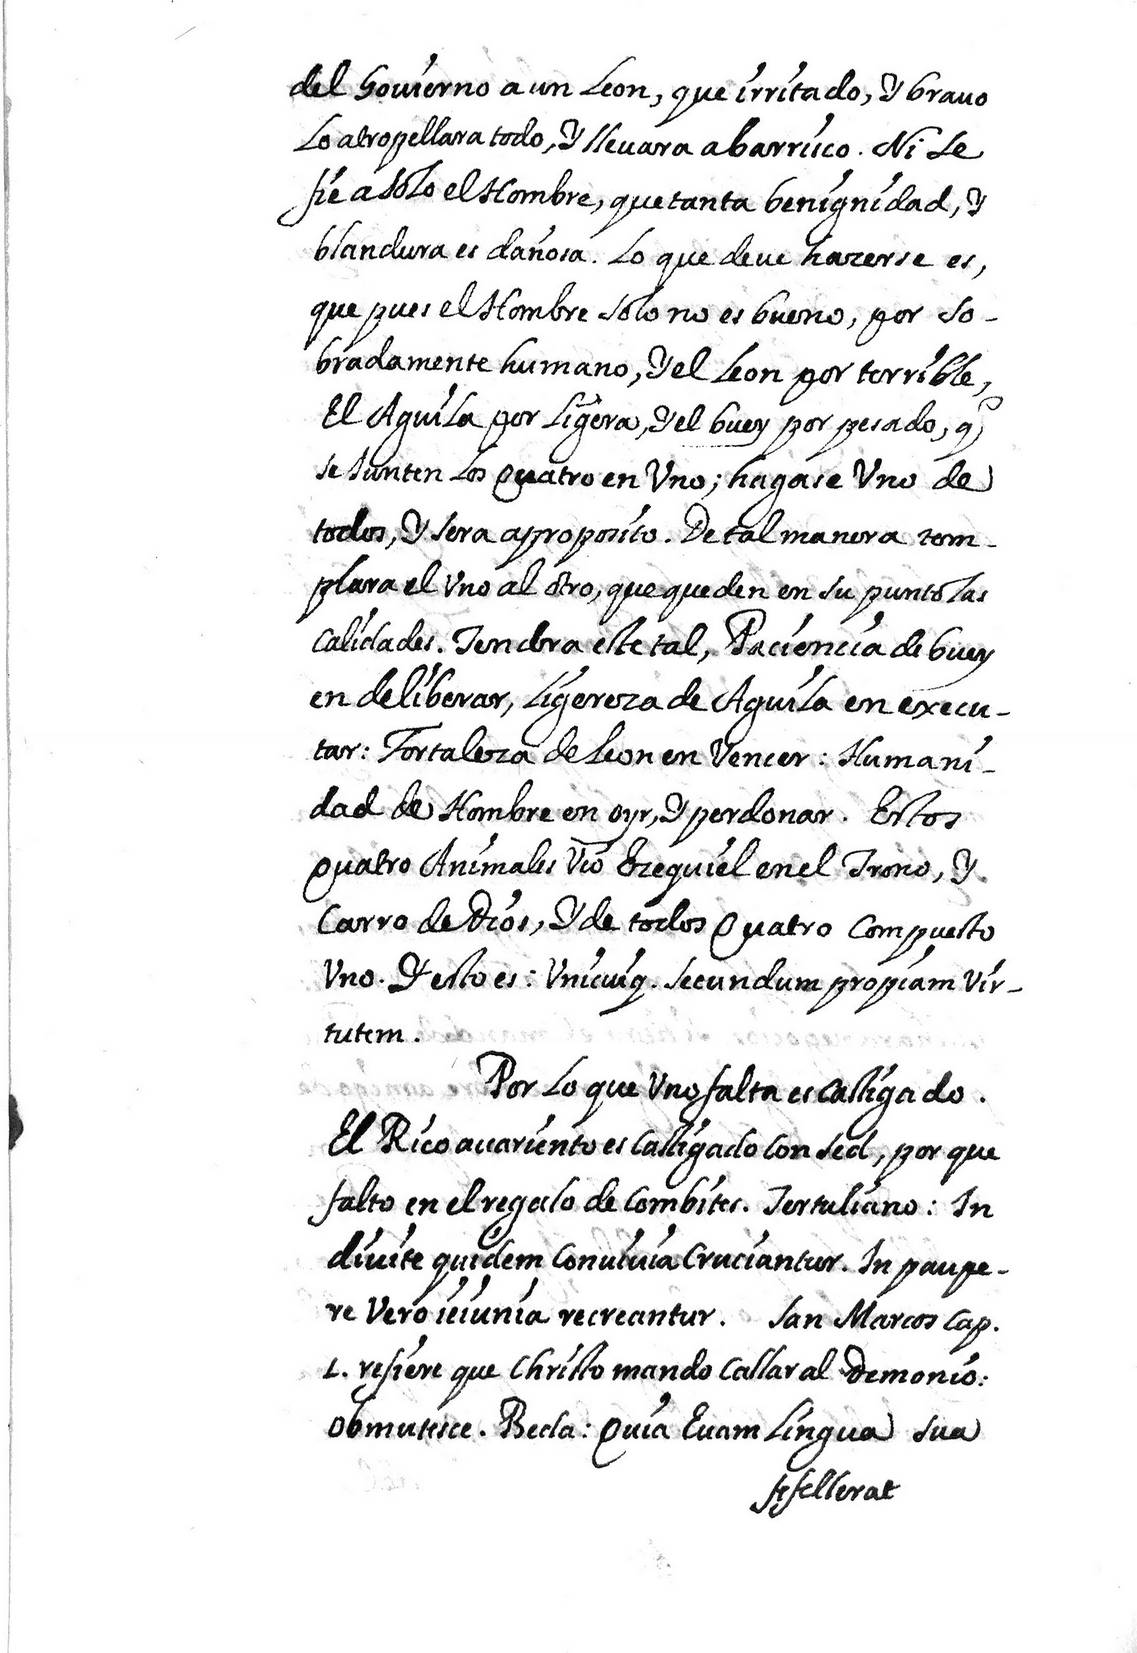 del Govierno a un Leon, que irritado, Y brauo
Lo atropellara todo, Y lleuara abarrisco. Ni se
fie a solo el Hombre, que tanta benignidad, Y
blandura es dañosa. Lo que deve hazerse es,
que pues el Hombre solo no es bueno, por so-
bradamente humano, Y el Leon por terrible,
El Aguila por Ligera, Y el buey por pesado, q̃
se Junten Los Quatro en Vno; hagase Vno de
todos, Y sera aproposito. De tal manera tem-
plara el Vno al otro, que queden en su punto las
Calidades. Tendra este tal, Paciencia de buey
en deliberar, Ligereza de Aguila en execu-
tar: Fortaleza de Leon en Vencer: Humani-
dad de Hombre en oyr, Y perdonar. Estos
Quatro Animales Vio Ezequiel en el Trono, Y
Carro de Dios, Y de todos Quatro Compuesto
Vno. Y esto es: Vnicuiq. secundum propiam Vir-
tutem.
Por Lo que Vno falta es Castigado.
El Rico auariento es Castigado Con sed, por que
falto en el regalo de Combites. Tertuliano: In
diuite quidem Conuiuia Cruciantur. In paupe-
re Vero ieiunia recreantur. San Marcos Cap.
1. refiere que Christo mando Callar al Demonio:
Obmutesce. Beda: Quia Euam Lingua sua
fefellerat